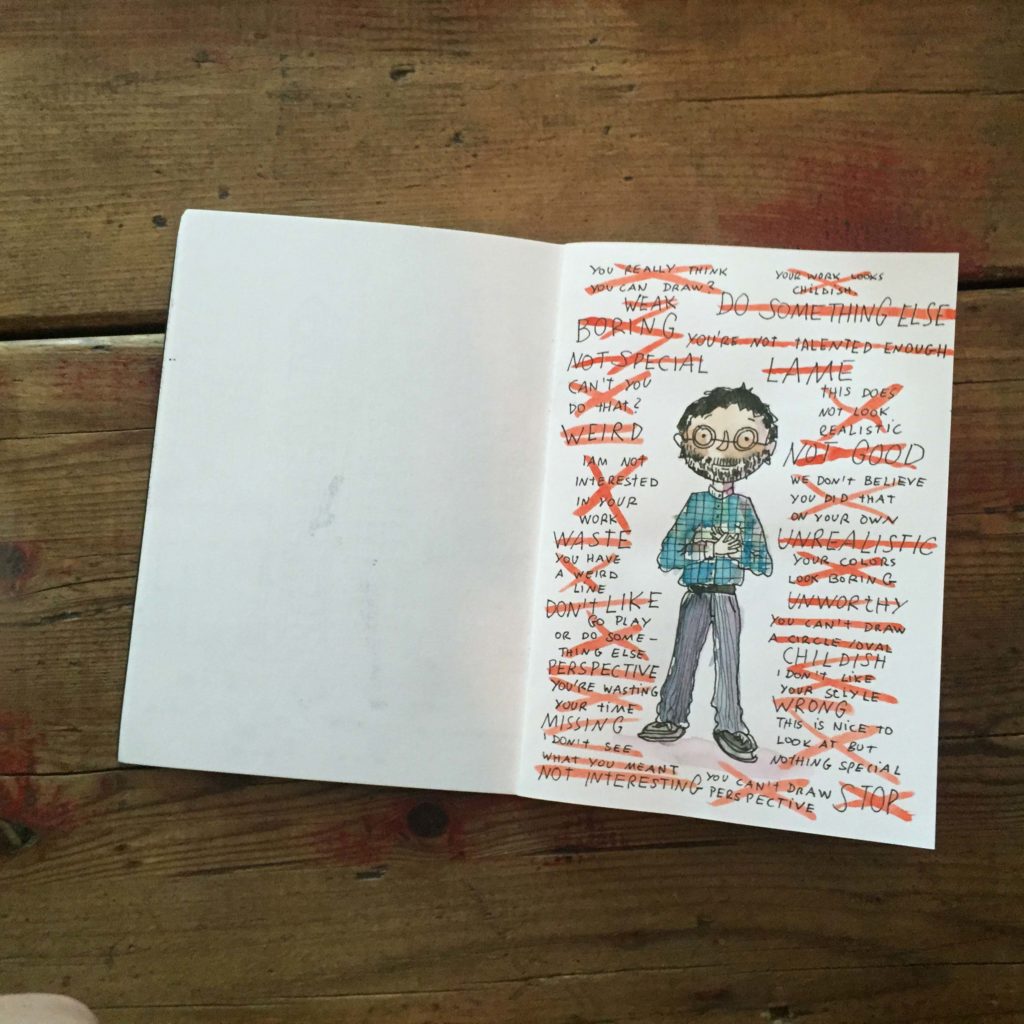 YOU REALLY THINK
YOU CAN DRAW?
YOUR WORK LOOKS
CHILDISH
WEAK
DO SOMETHING ELSE
BORING
YOU'RE NOT TALENTED ENOUGH
NOT SPECIAL
LAME
CAN'T YOU
DO THAT?
THIS DOES
NOT LOOK
REALISTIC
WEIRD
NOT GOOD
I AM NOT
INTERESTED
IN YOUR
WORK
WE DON'T BELIEVE
YOU DID THAT
ON YOUR OWN
WASTE
UNREALISTIC
YOU HAVE
A WEIRD
LINE
YOUR COLORS
LOOK BORING
DON'T LIKE
UNWORTHY
GO PLAY
OR DO SOME-
THING ELSE
YOU CAN'T DRAW
A CIRCLE/OVAL
PERSPECTIVE
CHILDISH
YOU'RE WASTING
YOUR TIME
I DON'T LIKE
YOUR STLYLE
MISSING
WRONG
I DON'T SEE
WHAT YOU MEANT
THIS IS NICE TO
LOOK AT BUT
NOTHING SPECIAL
NOT INTERESTING
YOU CAN'T DRAW
PERSPECTIVE
STOP